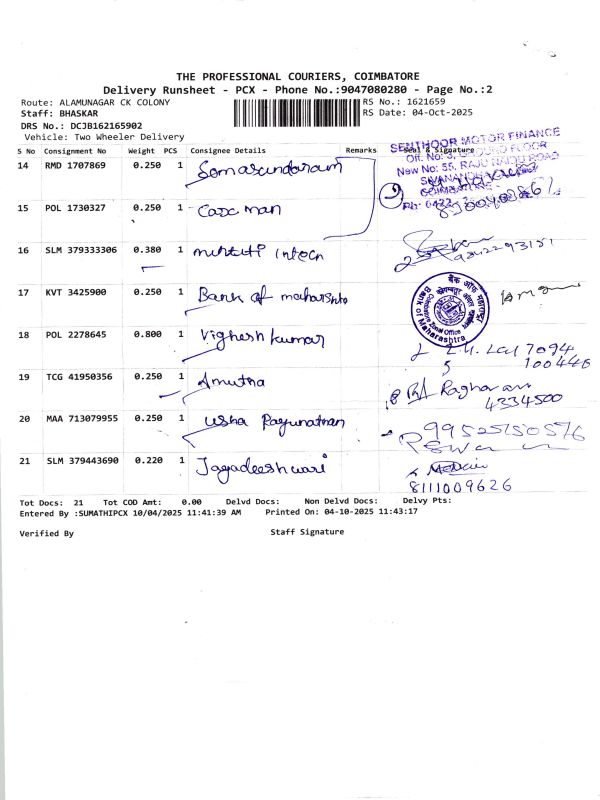 THE PROFESSIONAL COURIERS, COIMBATORE
Delivery Runsheet - PCX - Phone No.:9047080280 - Page No.:2
Route: ALAMUNAGAR CK COLONY RS No.: 1621659
Staff: BHASKAR RS Date: 04-Oct-2025
DRS No.: DCJB162165902
Vehicle: Two Wheeler Delivery
S No Consignment No Weight PCS Consignee Details Remarks Seal & Signature
SENTHOOR MOTOR FINANCE
Off. No: 3, GROUND FLOOR
New No: 55, RAJU NAIDU ROAD
COIMBATORE
14 RMD 1707869 0.250 1 Somasundaram
15 POL 1730327 0.250 1 Casx man
16 SLM 379333306 0.380 1
17 KVT 3425900 0.250 1 Bank of maharshto
बैंक ऑफ महाराष्ट्र
Coimbatore Zonal Office
Bank of Maharashtra
18 POL 2278645 0.800 1 Vighesh kumar
7094
100446
19 TCG 41950356 0.250 1 Amutha
Raghavan
4334500
20 MAA 713079955 0.250 1 usha Ragunathan
21 SLM 379443690 0.220 1 Jagadeeshwari
8111009626
Tot Docs: 21 Tot COD Amt: 0.00 Delvd Docs: Non Delvd Docs: Delvy Pts:
Entered By :SUMATHIPCX 10/04/2025 11:41:39 AM Printed On: 04-10-2025 11:43:17
Verified By Staff Signature